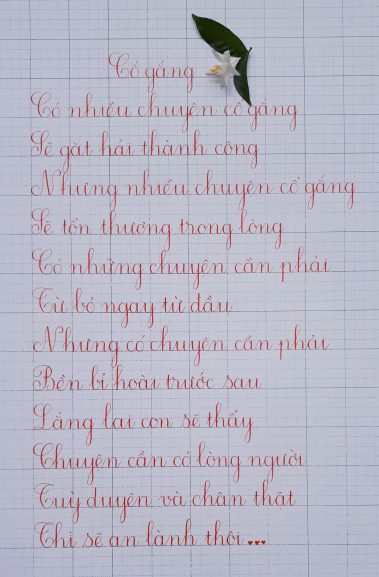 Cố gắng
Có nhiều chuyện cố gắng
Sẽ gặt hái thành công
Nhưng nhiều chuyện cố gắng
Sẽ tổn thương trong lòng
Có những chuyện cần phải
Từ bỏ ngay từ đầu
Nhưng có chuyện cần phải
Bền bỉ hoài trước sau
Lắng lại con sẽ thấy
Chuyện cần có lòng người
Tuỳ duyên và chân thật
Thì sẽ an lành thôi...